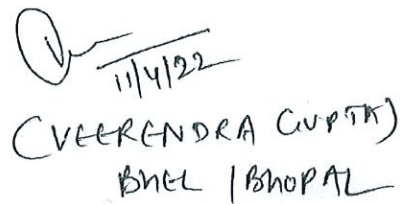 11/4/22
(VEERENDRA GUPTA)
BHEL / BHOPAL